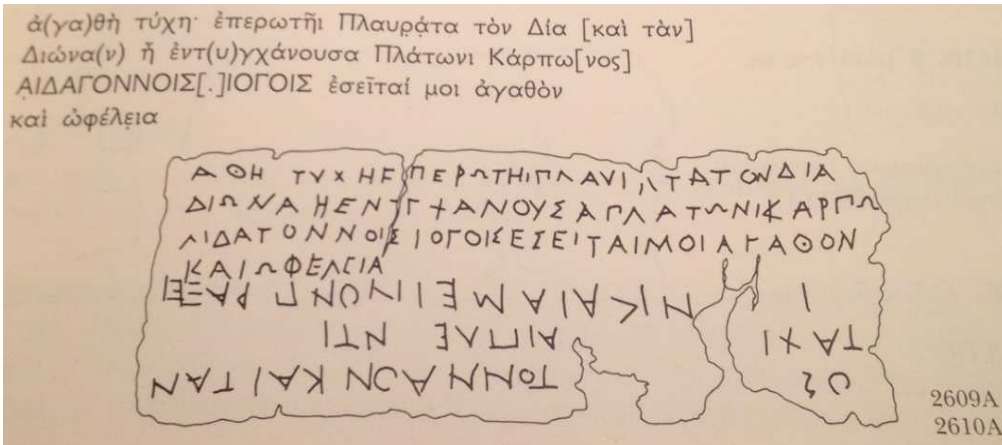 ἀ(γα)θὴ τύχη· ἐπερωτῆι Πλαυρ̣ά̣τα τὸν Δία [καὶ τὰν]
Διώνα(ν) ἦ ἐντ(υ)γχάνουσα Πλάτωνι Κάρπω[νος]
Α̣ΙΔΑΓΟΝΝΟΙΣ[.]ΙΟΓΟΙΣ ἐσεῖταί μοι ἀγαθὸν
καὶ ὠφέλε̣ια
ΑΘΗ ΤΥΧΗΕΠΕΡΩΤΗΙΠΛΑΥΙΛΤΑΤΟΝΔΙΑ
ΔΙΩΝΑΗΕΝΤΓΧΑΝΟΥΣΑΠΛΑΤΩΝΙΚΑΡΠΩ
ΛΙΔΑΤΟΝΝΟΙΣΙΟΓΟΙΣΕΣΕΙΤΑΙΜΟΙΑΓΑΘΟΝ
ΚΑΙΩΦΕΛΕΙΑ
ΤΟΝΝΑΟΝΚΑΙΤΑΝ
2609A
2610A